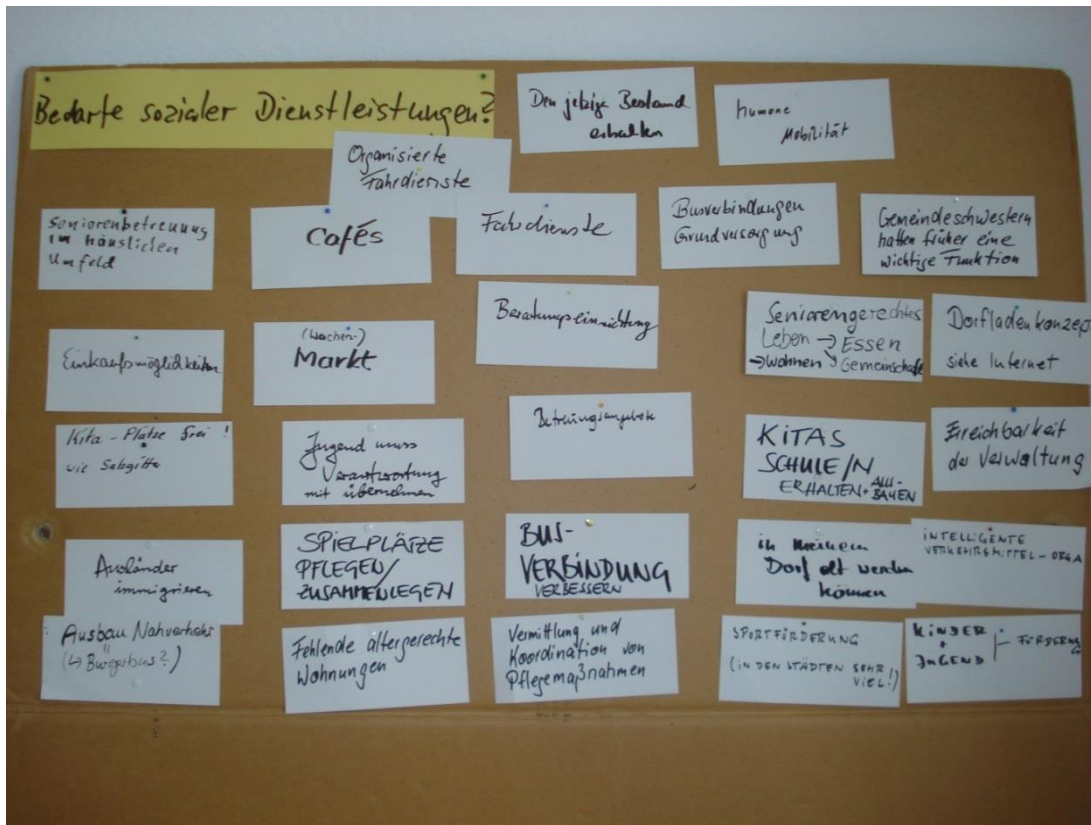 Bedarfe sozialer Dienstleistungen?
Den jetzige Bestand
erhalten
humane
Mobilität
Organisierte
Fahrdienste
Seniorenbetreuung
im häuslichen
Umfeld
Cafés
Fahrdienste
Busverbindungen
Grundversorgung
Gemeindeschwestern
hatten früher eine
wichtige Funktion
Einkaufsmöglichkeiten
(Wochen-)
Markt
Beratungseinrichtung
Seniorengerechtes
Leben → Essen
→ wohnen ↘ Gemeinschaft
Dorfladenkonzep
siehe Internet
Kita-Plätze frei!
wie
Jugend muss
Verantwortung
mit übernehmen
Betreuungsangebote
KITAS
SCHULE/N
ERHALTEN + AUS-
BAUEN
Erreichbarkeit
der Verwaltung
Ausländer
immigrieren
SPIELPLÄTZE
PFLEGEN/
ZUSAMMENLEGEN
BUS-
VERBINDUNG
VERBESSERN
in meinem
Dorf alt werden
können
INTELLIGENTE
VERKEHRSMITTEL-ORGA
Ausbau Nahverkehr
(↳ Bürgerbus?)
Fehlende altergerechte
Wohnungen
Vermittlung und
Koordination von
Pflegemaßnahmen
SPORTFÖRDERUNG
(IN DEN STÄDTEN SEHR
VIEL!)
KINDER
+
JUGEND
FÖRDERUNG